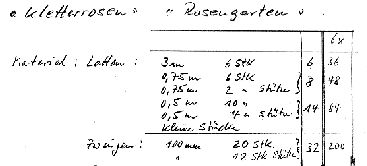 " Kletterrosen " " Rosengarten "
6x
Material: Latten: 3 m 6 Stk 6 36
0,75 m 6 Stk
0,75 m 2 " Stütze 8 48
0,5 m 10 "
0,5 m 4 " Stütze 14 84
kleine Stücke
Zwingen: 100 mm 20 Stk. 32 200
" 12 Stk Stütze